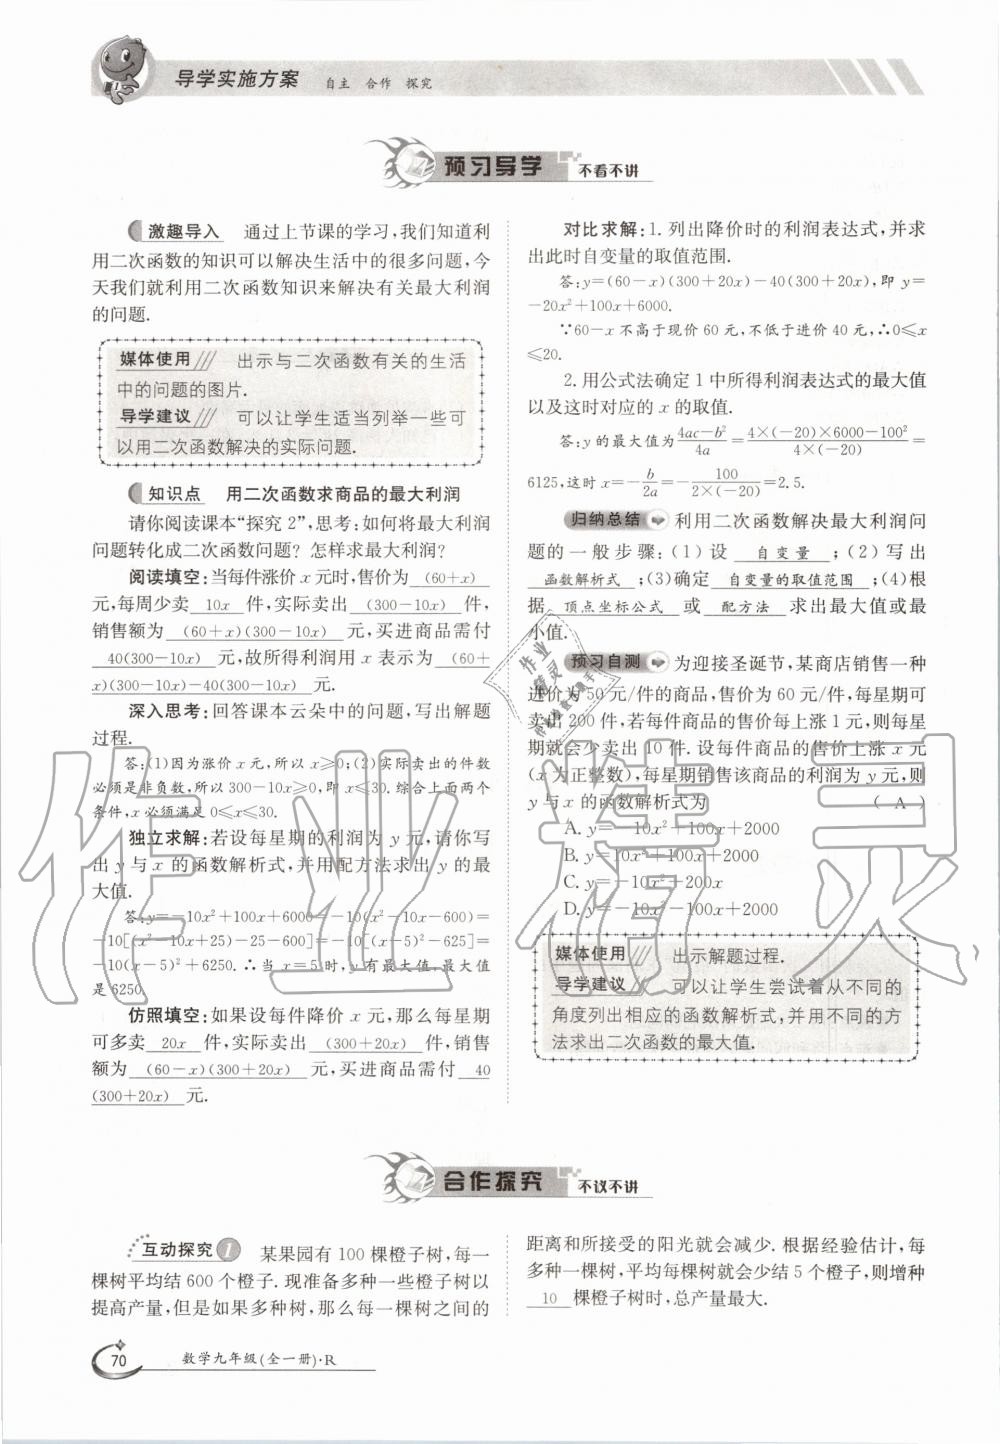 导学实施方案 自主 合作 探究
预习导学 不看不讲
激趣导入 通过上节课的学习,我们知道利
用二次函数的知识可以解决生活中的很多问题,今
天我们就利用二次函数知识来解决有关最大利润
的问题.
媒体使用 出示与二次函数有关的生活
中的问题的图片.
导学建议 可以让学生适当列举一些可
以用二次函数解决的实际问题.
知识点 用二次函数求商品的最大利润
请你阅读课本“探究2”,思考:如何将最大利润
问题转化成二次函数问题?怎样求最大利润?
阅读填空:当每件涨价 x 元时,售价为 (60+x)
元,每周少卖 10x 件,实际卖出 (300-10x) 件,
销售额为 (60+x)(300-10x) 元,买进商品需付
40(300-10x) 元,故所得利润用 x 表示为 (60+
x)(300-10x)-40(300-10x) 元.
深入思考:回答课本云朵中的问题,写出解题
过程.
答:(1)因为涨价 x 元,所以 x≥0;(2)实际卖出的件数
必须是非负数,所以 300-10x≥0,即 x≤30.综合上面两个
条件,x 必须满足 0≤x≤30.
独立求解:若设每星期的利润为 y 元,请你写
出 y 与 x 的函数解析式,并用配方法求出 y 的最
大值.
答:y=-10x²+100x+6000=-10(x²-10x-600)=
-10[(x²-10x+25)-25-600]=-10[(x-5)²-625]=
-10(x-5)²+6250.∴当 x=5 时,y 有最大值,最大值
是 6250.
仿照填空:如果设每件降价 x 元,那么每星期
可多卖 20x 件,实际卖出 (300+20x) 件,销售
额为 (60-x)(300+20x) 元,买进商品需付 40
(300+20x) 元.
对比求解:1. 列出降价时的利润表达式,并求
出此时自变量的取值范围.
答:y=(60-x)(300+20x)-40(300+20x),即 y=
-20x²+100x+6000.
∵60-x 不高于现价 60 元,不低于进价 40 元,∴0≤x
≤20.
2. 用公式法确定 1 中所得利润表达式的最大值
以及这时对应的 x 的取值.
答:y 的最大值为 (4ac-b²)/4a = (4×(-20)×6000-100²)/(4×(-20)) =
6125,这时 x=-b/2a=-100/(2×(-20))=2.5.
归纳总结 利用二次函数解决最大利润问
题的一般步骤:(1)设 自变量 ;(2)写出
函数解析式 ;(3)确定 自变量的取值范围 ;(4)根
据 顶点坐标公式 或 配方法 求出最大值或最
小值.
预习自测 为迎接圣诞节,某商店销售一种
进价为 50 元/件的商品,售价为 60 元/件,每星期可
卖出 200 件,若每件商品的售价每上涨 1 元,则每星
期就会少卖出 10 件.设每件商品的售价上涨 x 元
(x 为正整数),每星期销售该商品的利润为 y 元,则
y 与 x 的函数解析式为 ( A )
A. y=-10x²+100x+2000
B. y=10x²+100x+2000
C. y=-10x²+200x
D. y=-10x²-100x+2000
媒体使用 出示解题过程.
导学建议 可以让学生尝试着从不同的
角度列出相应的函数解析式,并用不同的方
法求出二次函数的最大值.
合作探究 不议不讲
互动探究 1 某果园有 100 棵橙子树,每一
棵树平均结 600 个橙子.现准备多种一些橙子树以
提高产量,但是如果多种树,那么每一棵树之间的
距离和所接受的阳光就会减少.根据经验估计,每
多种一棵树,平均每棵树就会少结 5 个橙子,则增种
10 棵橙子树时,总产量最大.
70 数学九年级(全一册)·R
作业精灵